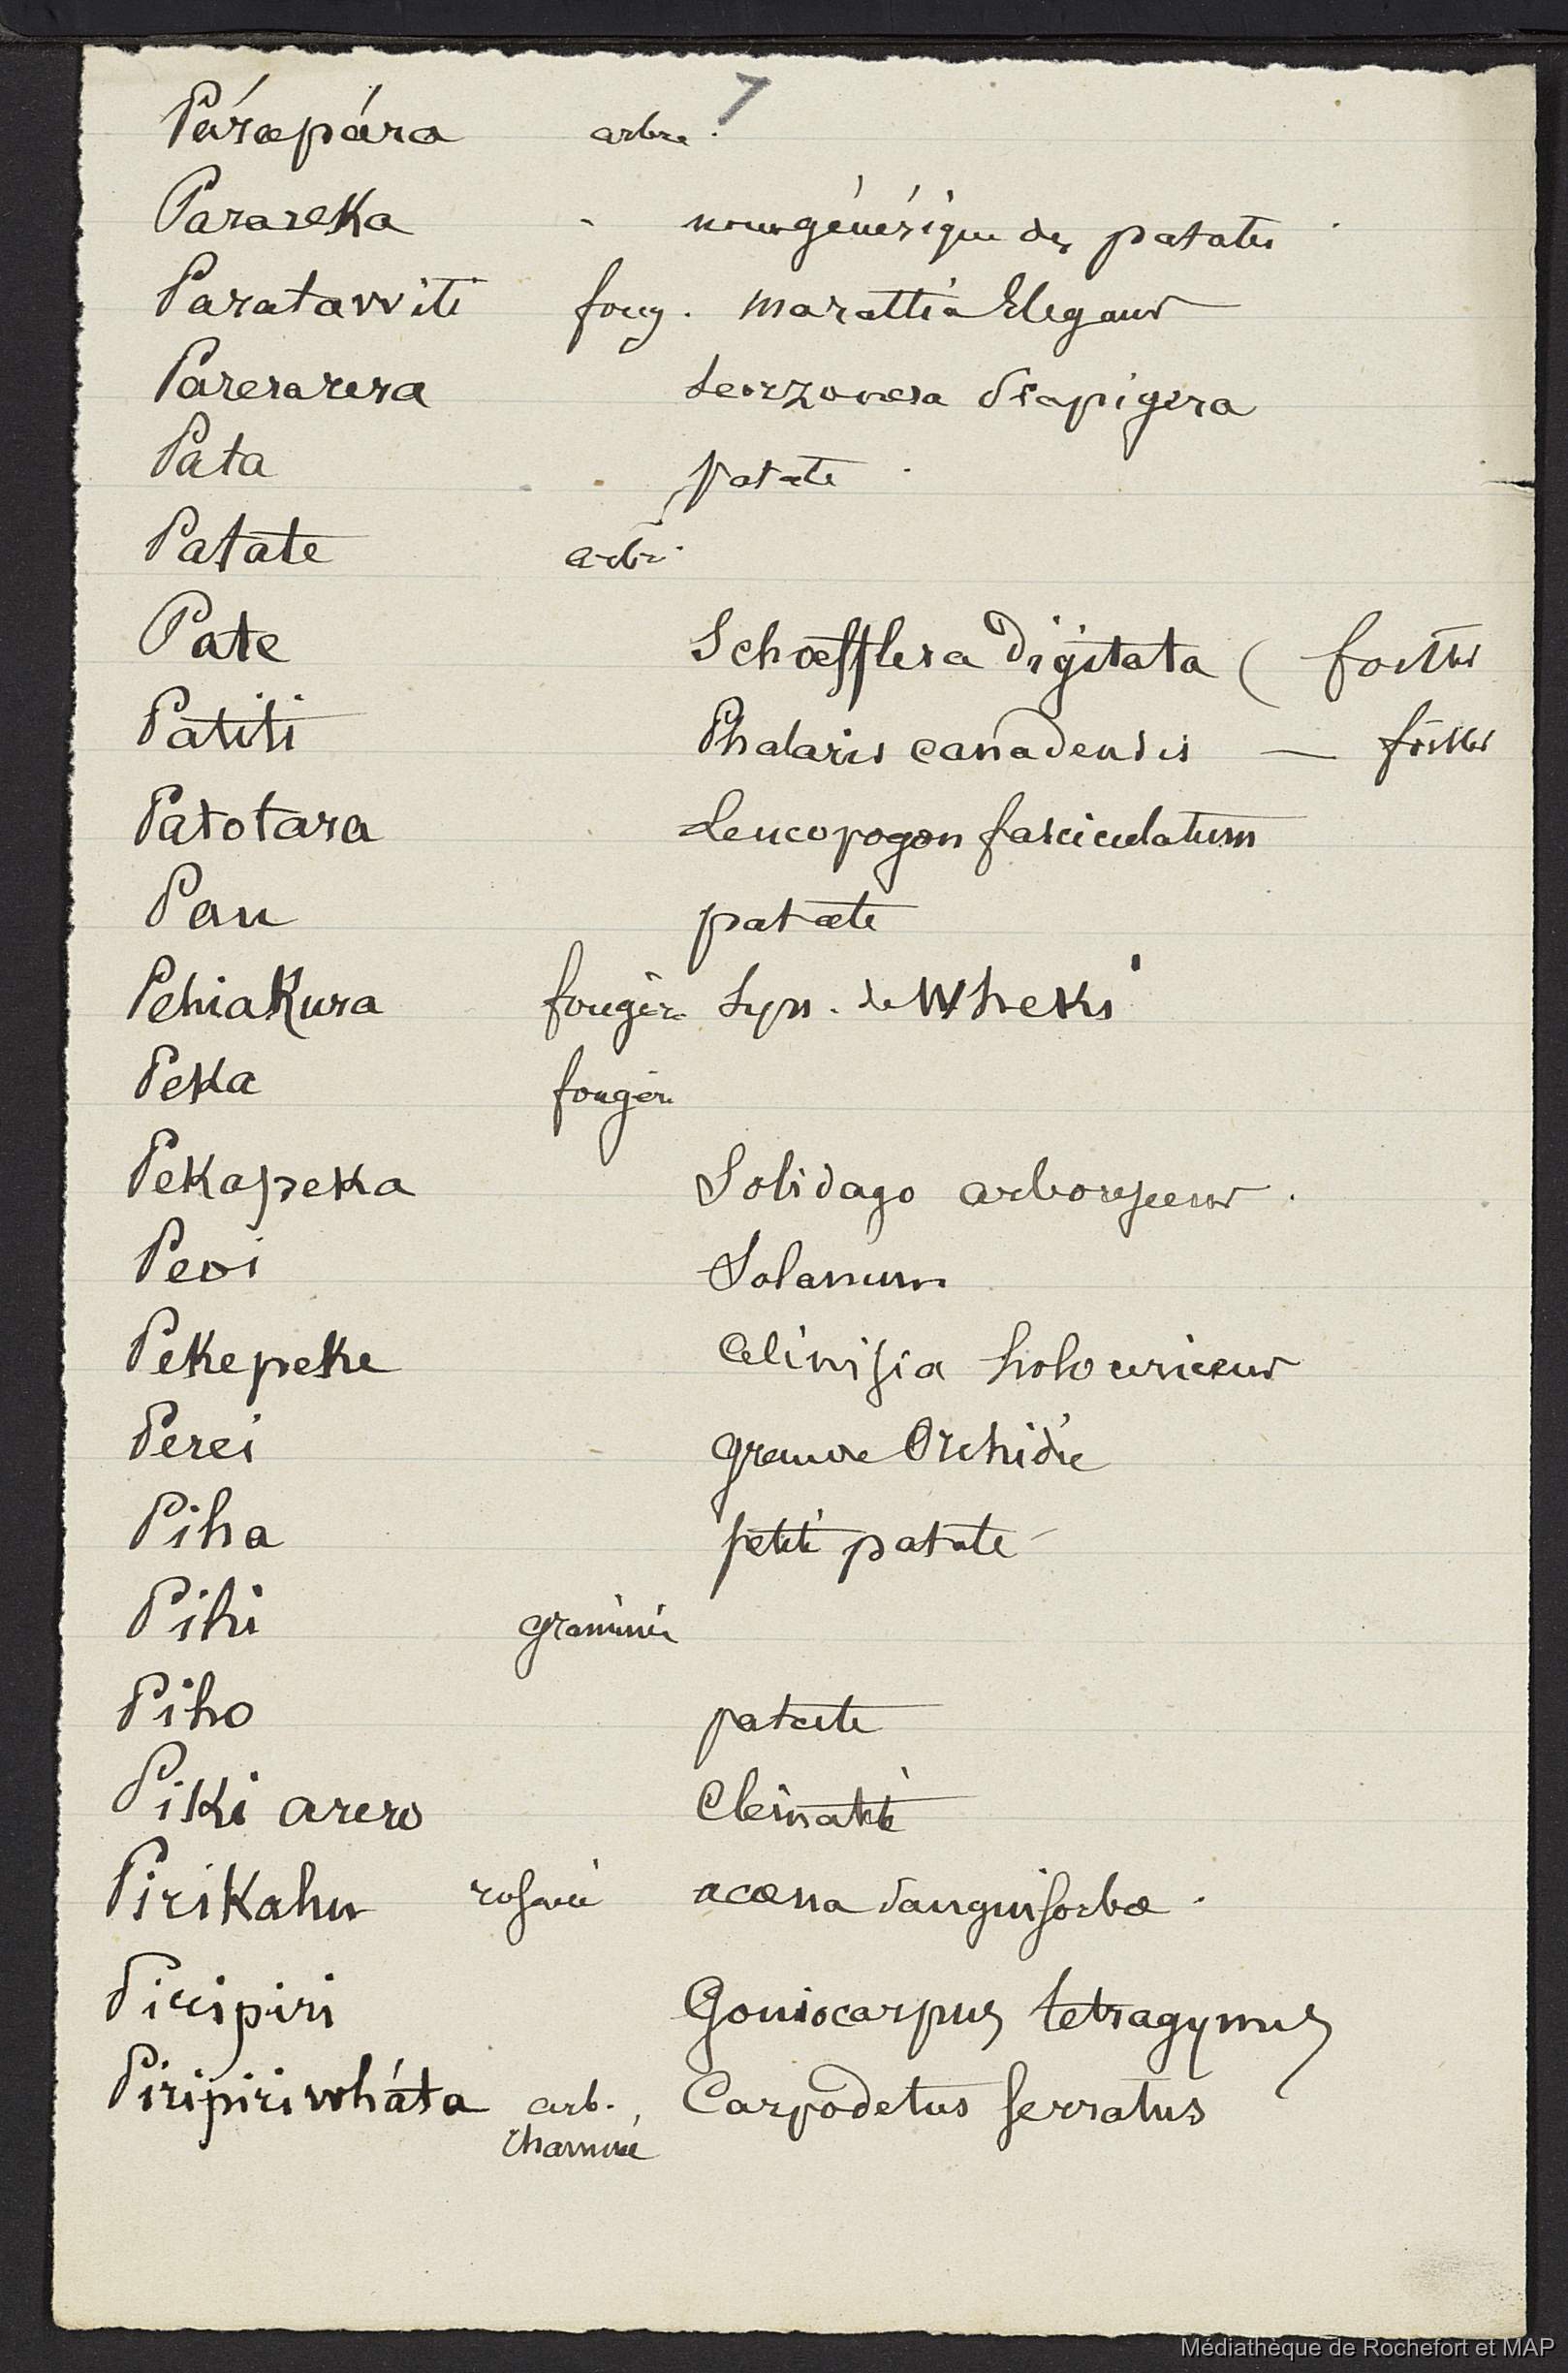 7
Párapára arbre.
Parareka - nom générique des patates
Paratawiti foug. Marattia Elegans
Parerarera Scorzonera Scapigera
Pata patate
Patate arbr.
Pate Schoefflera Digitata ( forster
Patiti Phalaris canadensis — forster
Patotara Leucopogon fasciculatum
Pau patate
Pehiakura fougère Syn. de Wheki
Peka fougère
Pekapeka Solidago arborescens.
Peoi Solanum
Pekepeke Celinisia holocericeus
Perei grande Orchidée
Piha petite patate
Pihi graminée
Piho patate
Piki arero Clématite
Pirikahu rosacée acæna Sanguisorbæ.
Piripiri Goniocarpus tetragynus
Piripiriwháta arb. Carpodetus Serratus
Médiathèque de Rochefort et MAP